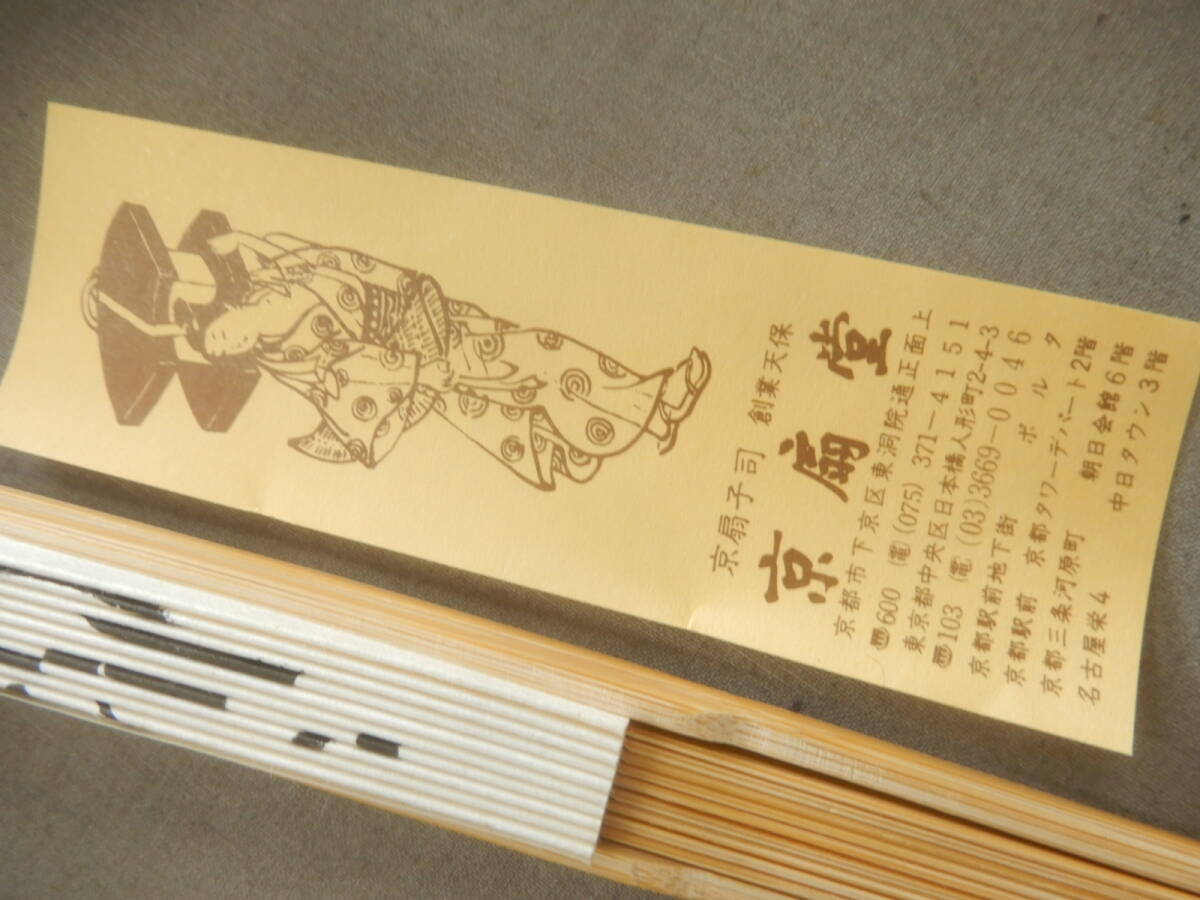 京扇子司 創業天保
京扇堂
京都市下京区東洞院通正面上
〠600 ㊡(075) 371-4151
東京都中央区日本橋人形町2-4-3
〠103 ㊡(03)3669-0046
京都駅前地下街 ポルタ
京都駅前 京都タワーデパート2階
京都三条河原町 朝日会館6階
名古屋栄4 中日タウン3階